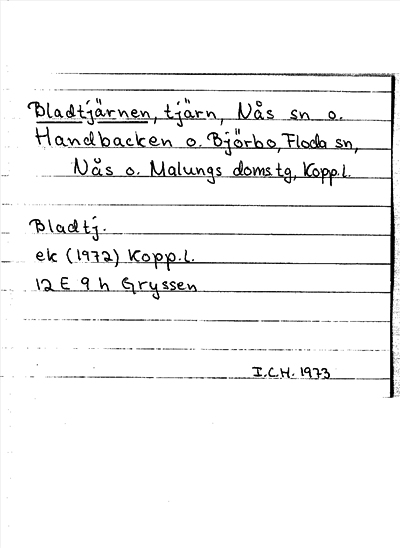 Bladtjärnen, tjärn, Nås sn o.
Handbacken o. Björbo, Floda sn,
Nås o. Malungs doms.tg, Kopp.l.
Bladtj.
ek (1972) Kopp.l.
12 E 9 h Gryssen
I.C.H. 1973